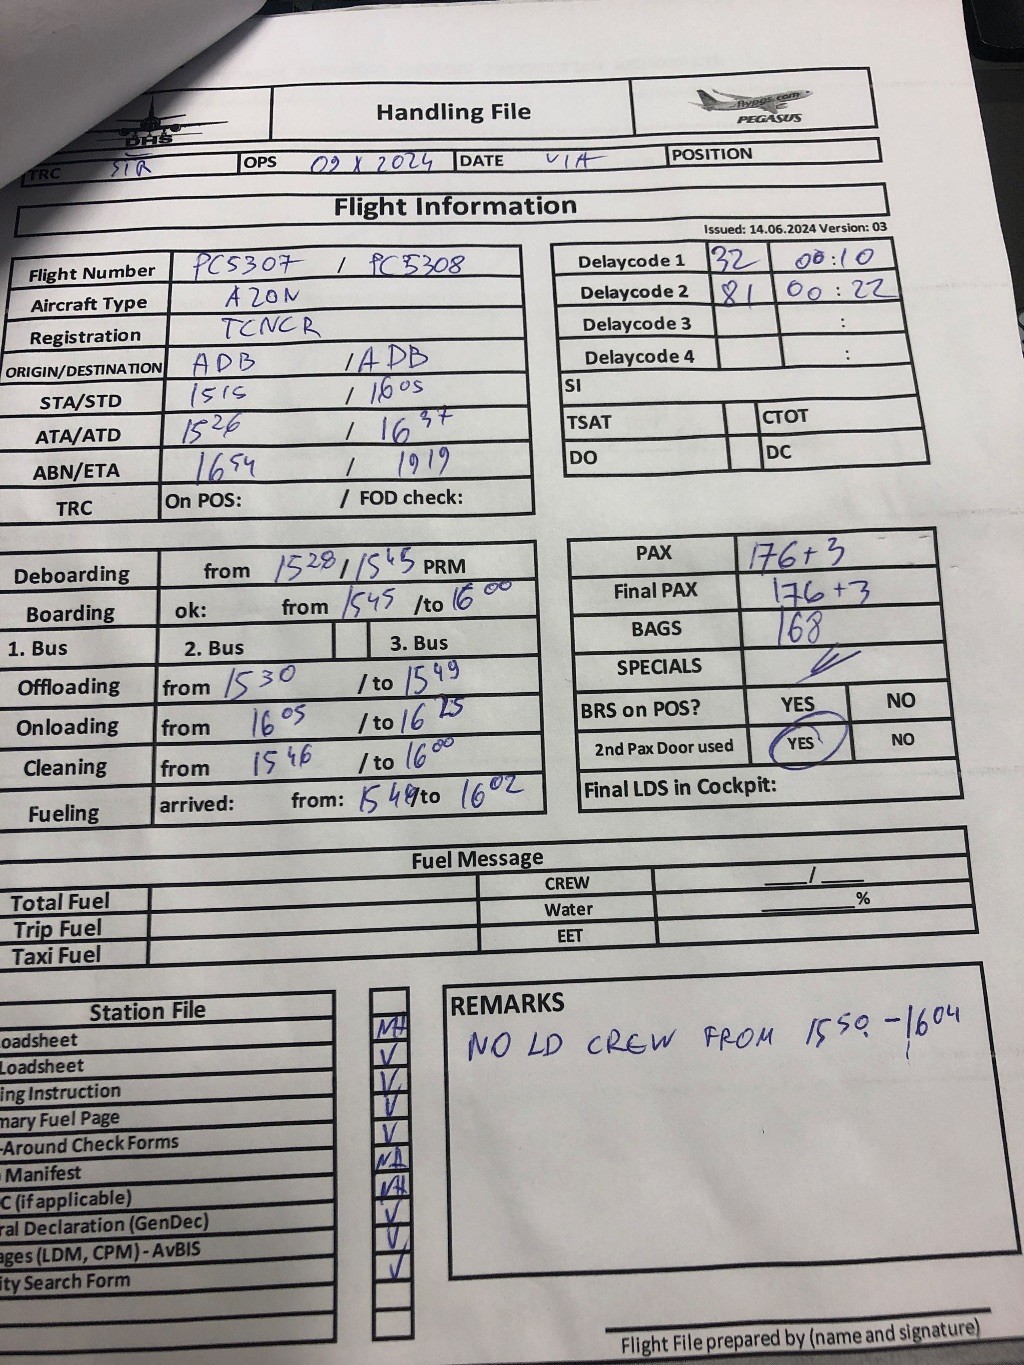 DHS
Handling File
flypgs.com
PEGASUS
TRC SIR OPS 09 X 2024 DATE VIA POSITION
Flight Information
Issued: 14.06.2024 Version: 03
Flight Number PC5307 / PC5308
Aircraft Type A20N
Registration TCNCR
ORIGIN/DESTINATION ADB / ADB
STA/STD 1515 / 1605
ATA/ATD 1526 / 1637
ABN/ETA 1654 / 1919
TRC On POS: / FOD check:
Delaycode 1 32 00:10
Delaycode 2 81 00:22
Delaycode 3 :
Delaycode 4 :
SI
TSAT CTOT
DO DC
Deboarding from 1528 / 1545 PRM
Boarding ok: from 1545 /to 1600
1. Bus 2. Bus 3. Bus
Offloading from 1530 / to 1549
Onloading from 1605 / to 1625
Cleaning from 1546 / to 1600
Fueling arrived: from: 1549/to 1602
PAX 176+3
Final PAX 176+3
BAGS 168
SPECIALS
BRS on POS? YES NO
2nd Pax Door used YES NO
Final LDS in Cockpit:
Fuel Message
Total Fuel CREW ___/___
Trip Fuel Water ______%
Taxi Fuel EET
Station File
oadsheet NA
Loadsheet V
ing Instruction V
mary Fuel Page V
-Around Check Forms V
Manifest NA
C (if applicable) NA
ral Declaration (GenDec) V
ages (LDM, CPM) - AvBIS V
ity Search Form V
REMARKS
NO LD CREW FROM 1550 - 1604
Flight File prepared by (name and signature)